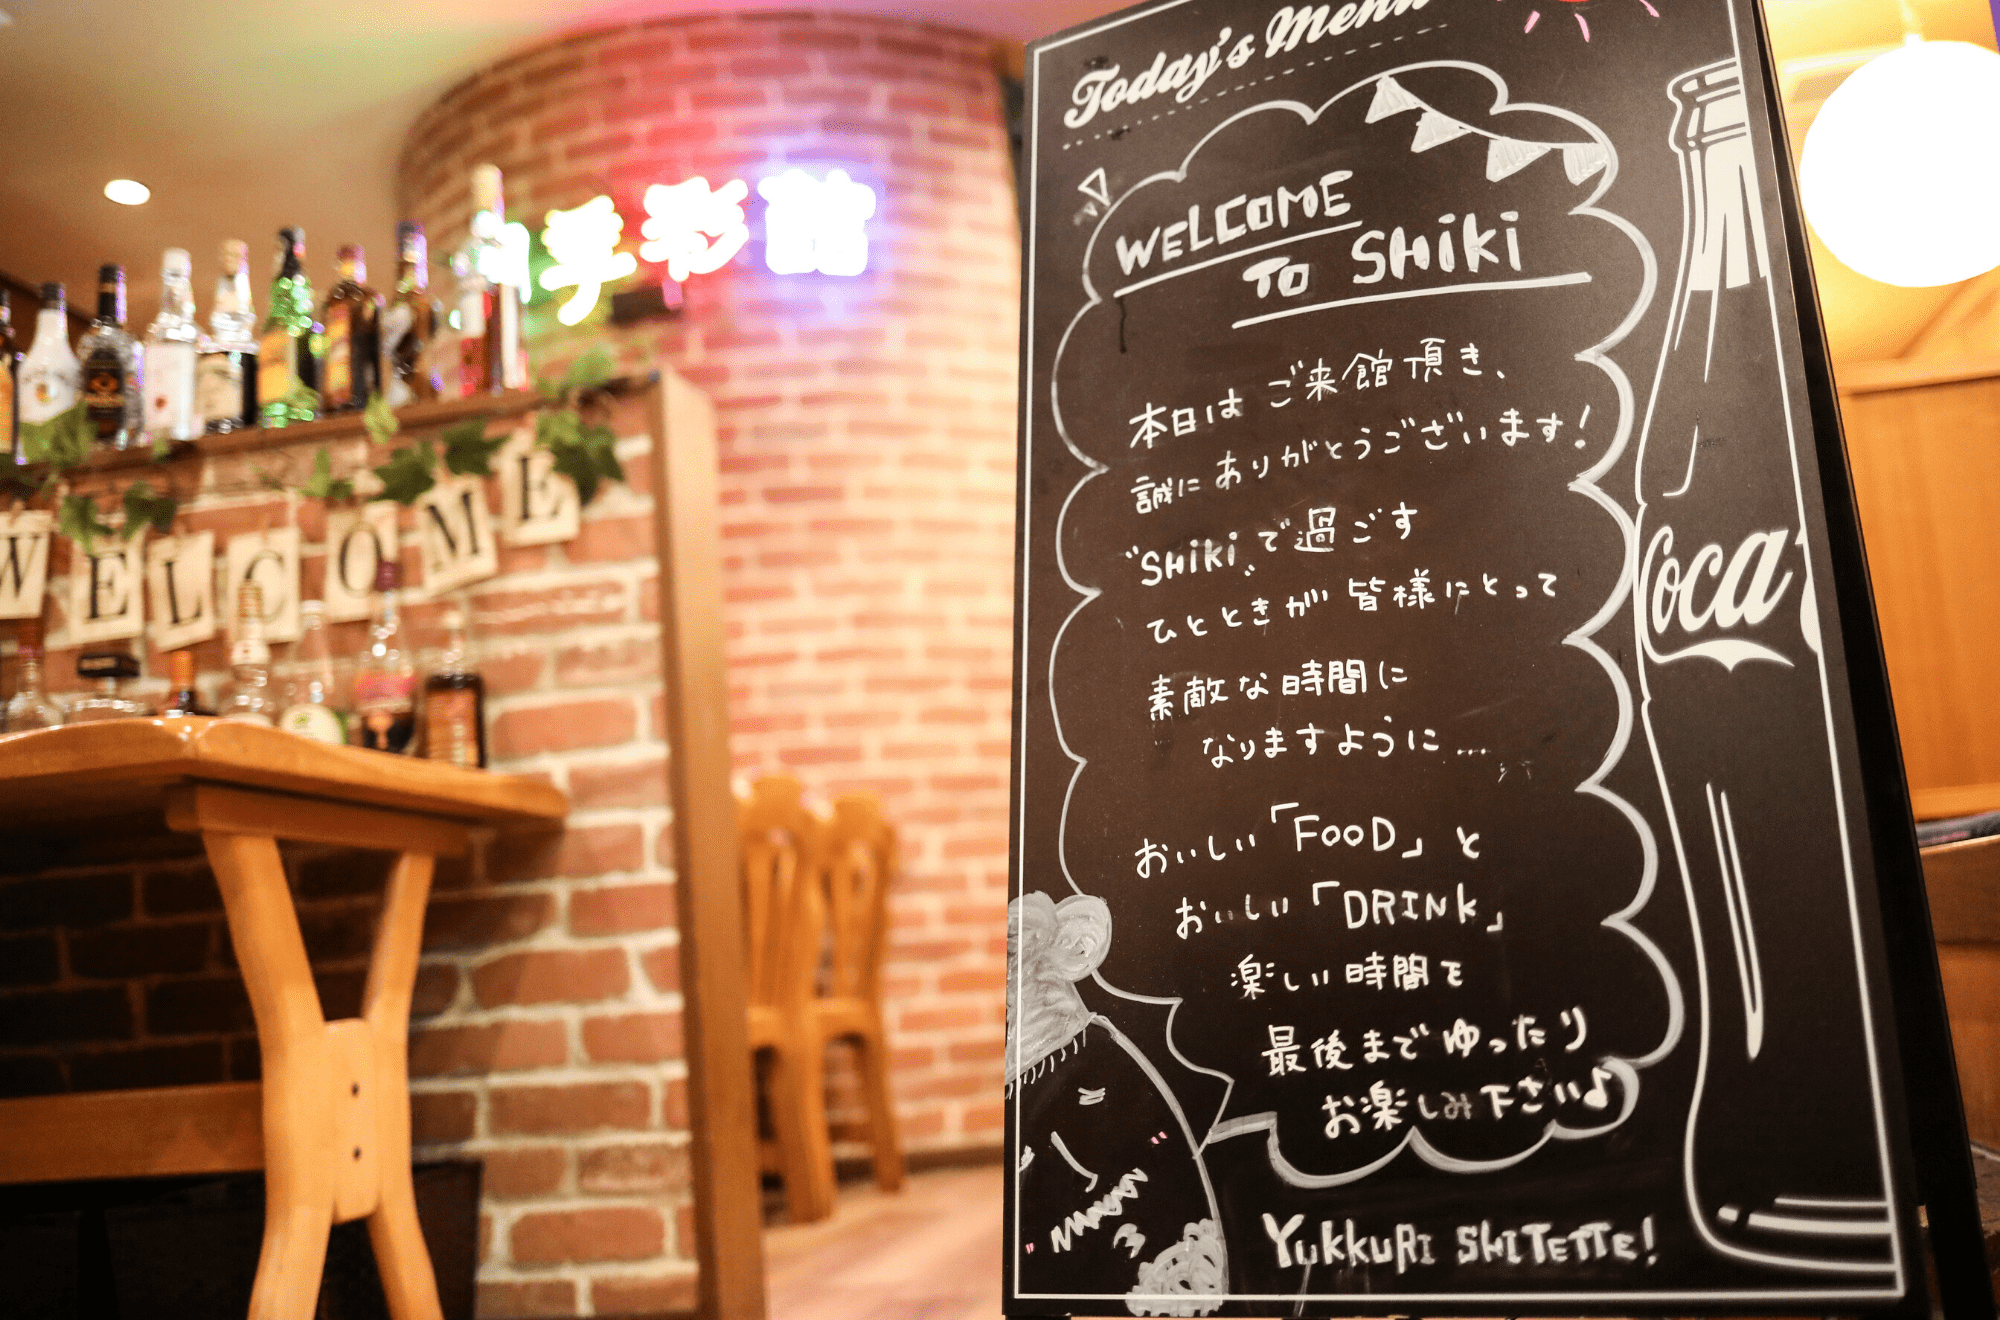 Today's Menu
WELCOME
TO SHiKi
本日は ご来館頂き、
誠に ありがとうございます!
"SHiKi"で過ごす
ひとときが 皆様にとって
素敵な時間に
なりますように...
おいしい「FOOD」と
おいしい「DRINK」
楽しい時間を
最後までゆったり
お楽しみ下さい♪
YUKKURI SHITETTE!
Coca
WELCOME
彩館